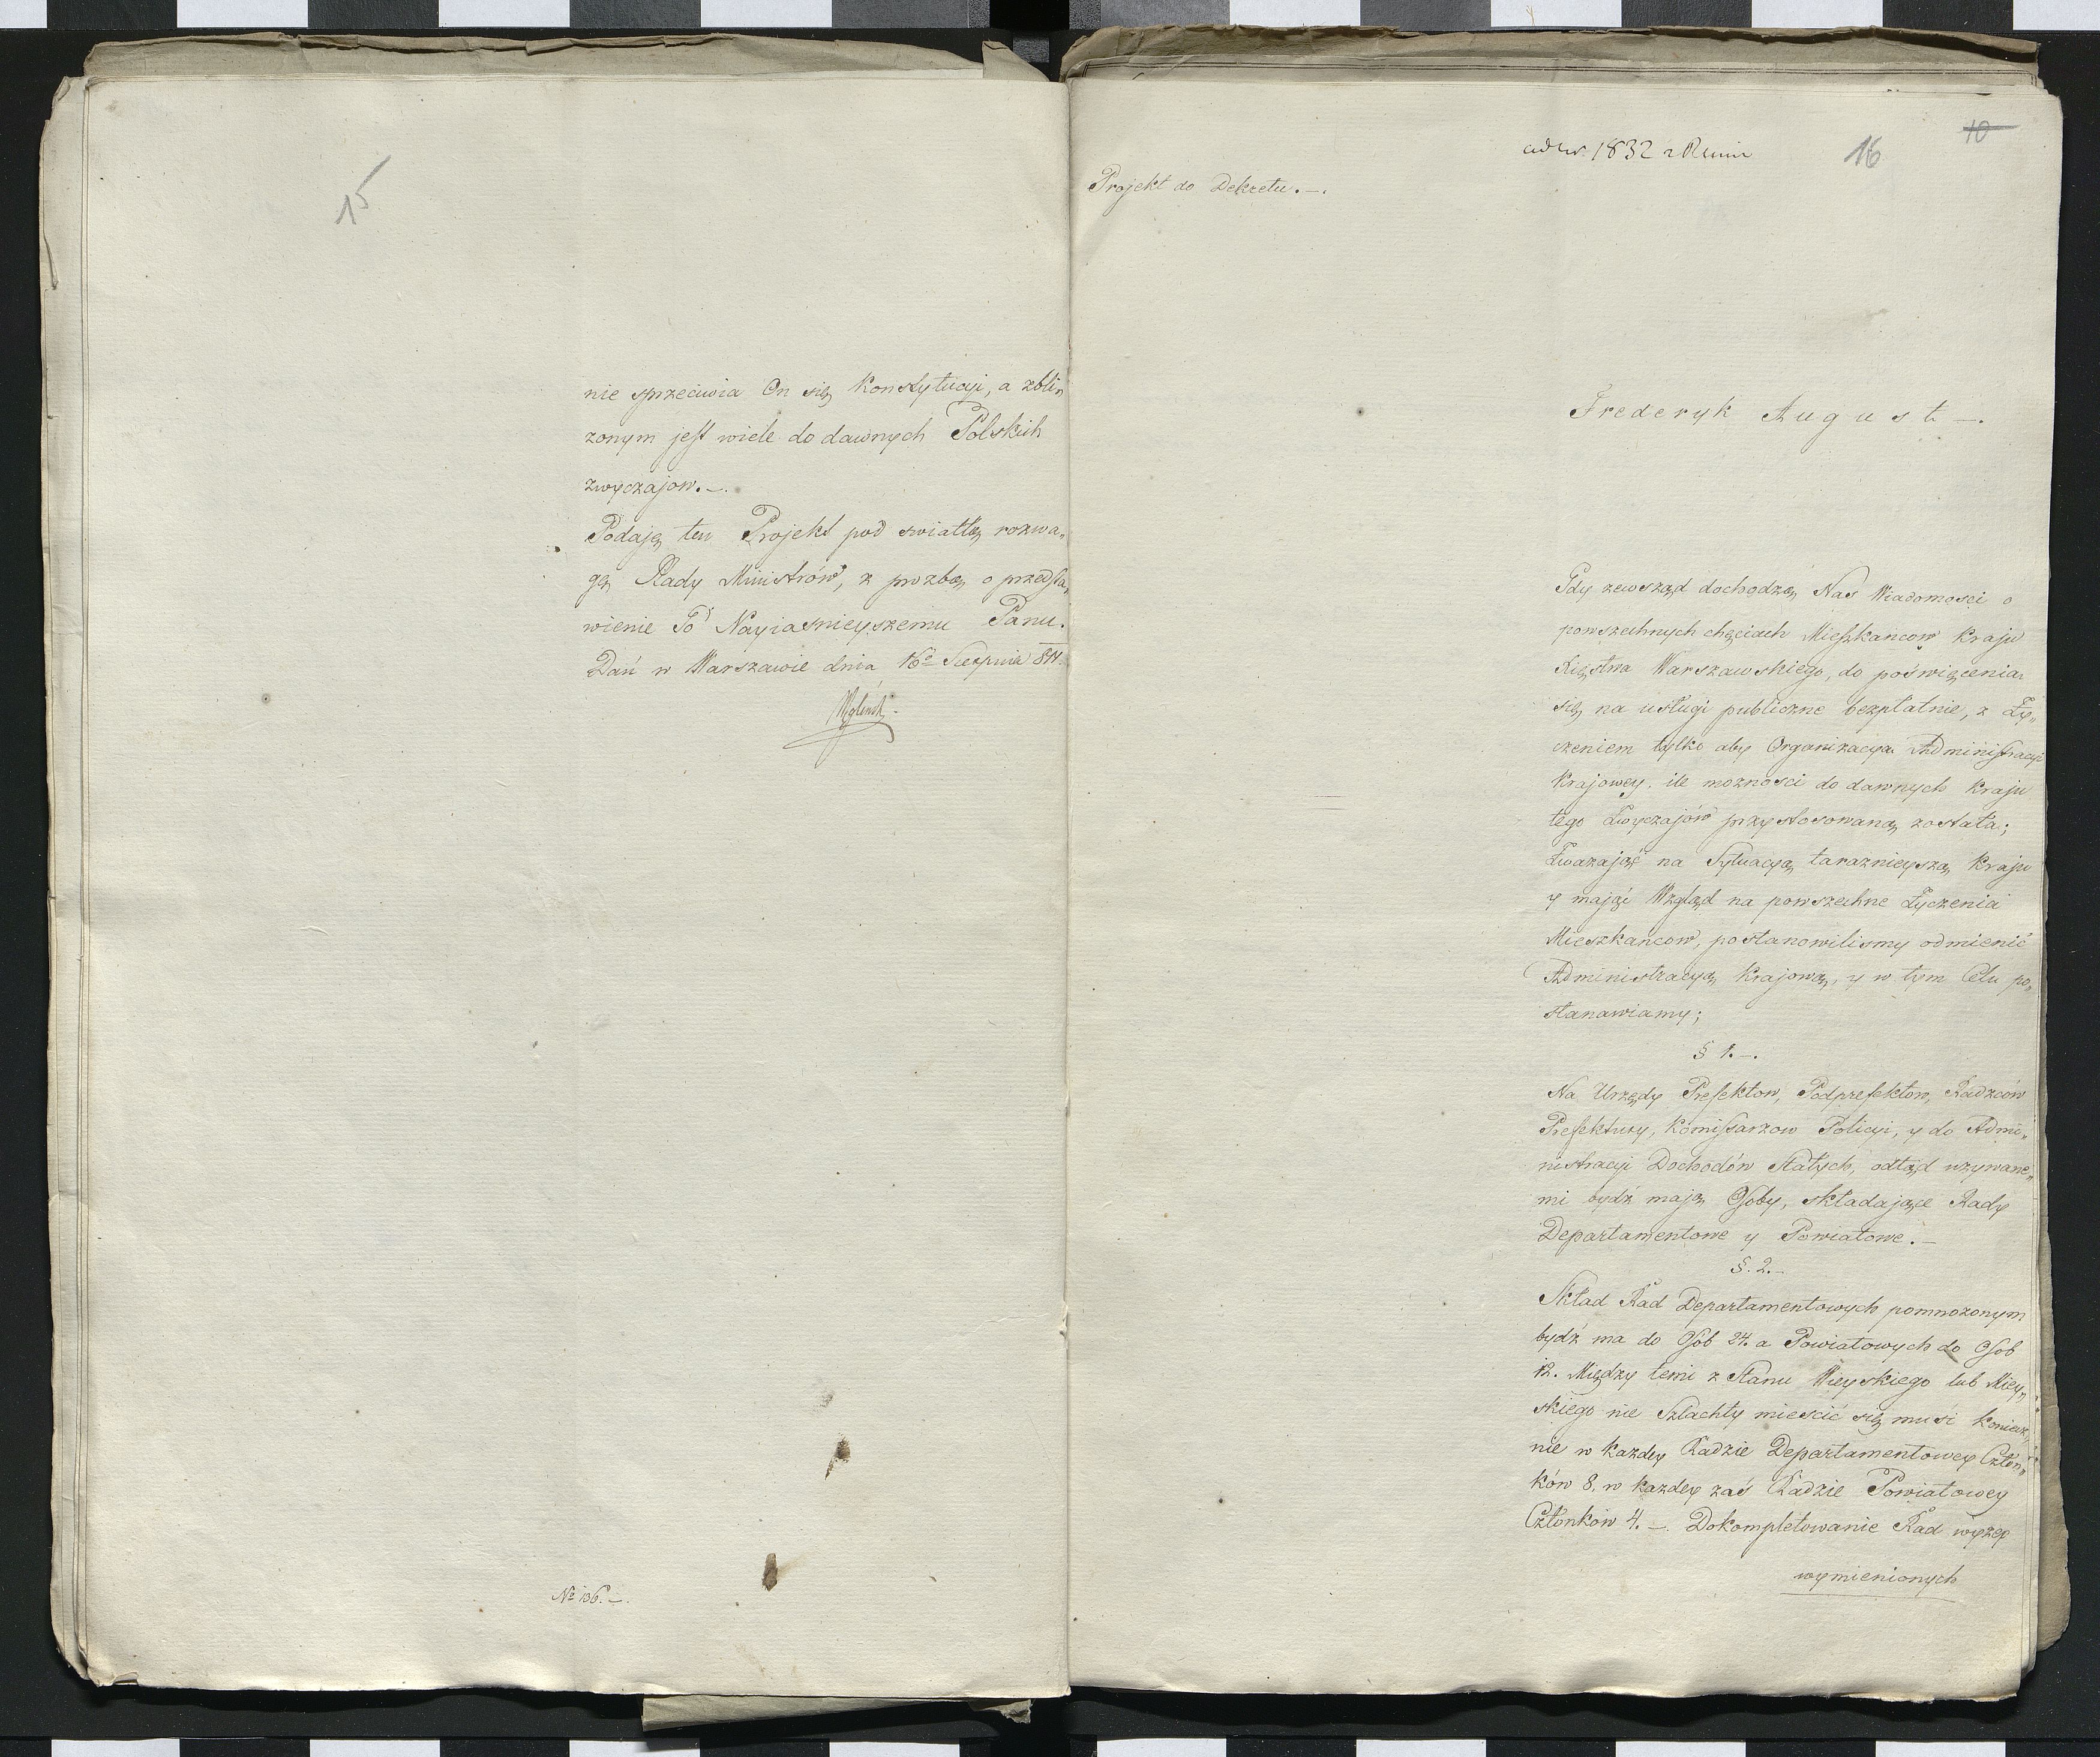 15
nie sprzeciwia On się Konstytucyi, a zbli„
zonym jest wiele do dawnych Polskich
zwyczajow. –.
Podaję ten Projekt pod swiatłą rozwa„
gę Rady Ministrów, z prozbą o przedsta„
wienie Go Nayiasnieyszemu Panu.
Dań w Warszawie dnia 16º Sierpnia
Węgleński
Nº 136. –.
16
10
ad nr. 1832
Projekt do Dekretu. –.
Frederyk August –.
Gdy zewsząd dochodzą Nas Wiadomosci o
powszechnych chęciach Mieszkancow Kraju
Xięstwa Warszawskiego, do poświęcenia
się na usługi publiczne bezpłatnie, z Ży„
czeniem tylko aby Organizacya Administracyi
Krajowey, ile moznosci do dawnych Kraju
tego Zwyczajów przystosowaną została;
Zwazając na Sytuacyą taraznieyszą Kraju
y mając Wzgląd na powszechne Życzenia
Mieszkancow, postanowilismy odmienić
Administracyą Krajową, y w tym Celu po„
stanawiamy;
§ 1. –.
Na Urzędy Prefektow, Podprefektow, Radzców
Prefektury, Komissarzow Policyi, y do Admi„
nistracyi Dochodów Stałych, odtąd uzywane„
mi bydź mają Osoby, składające Rady
Departamentowe y Powiatowe. –
§. 2. –
Skład Rad Departamentowych pomnozonym
bydź ma do Osób 24. a Powiatowych do Osob
12. Między temi z Stanu Wieyskiego lub Miey„
skiego nie Szlachty miescić się musi koniecz„
nie w kazdey Radzie Departamentowey Człon„
ków 8. w kazdey zaś Radzie Powiatowey
Członkow 4. –. Dokompletowanie Rad wyzey
wymienionych